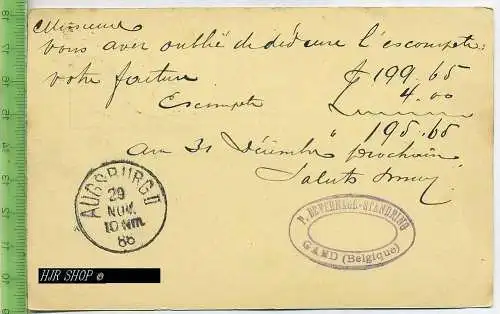 Messieurs
Vous avez oublié de déduire l'escompte:
votre facture
₣ 199.65
Escompte
4.00
195.65
au 31 Décembre prochain
Saluts
AUGSBURG II
29
NOV.
10 Nm.
86
P. DEVERNAGE-STANDRING
GAND (Belgique)
HJR SHOP ©